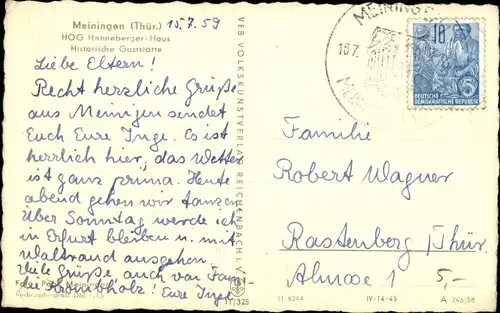 Meiningen (Thür.) 15.7.59
HOG Henneberger-Haus
Historische Gaststätte
Liebe Eltern!
Recht herzliche Grüße
aus Meiningen sendet
Euch Eure Inge. Es ist
herrlich hier, das Wetter
ist ganz prima. Heute
abend gehen wir tanzen.
Über Sonntag werde ich
in Erfurt bleiben u. mit
Waltraud ausgehen.
Viele Grüße, auch von Fam.
Krombholz! Eure Inge
Meiningen
Verbraucherpreis DM -,15
VEB VOLKSKUNSTVERLAG REICHENBACH I. V.
11/325
MEININGE
16.7.
10
5
DEUTSCHE
DEMOKRATISCHE REPUBLIK
Familie
Robert Wagner
Rastenberg /Thür.
1
5,-
II 6244
IV-14-45
A 246/58